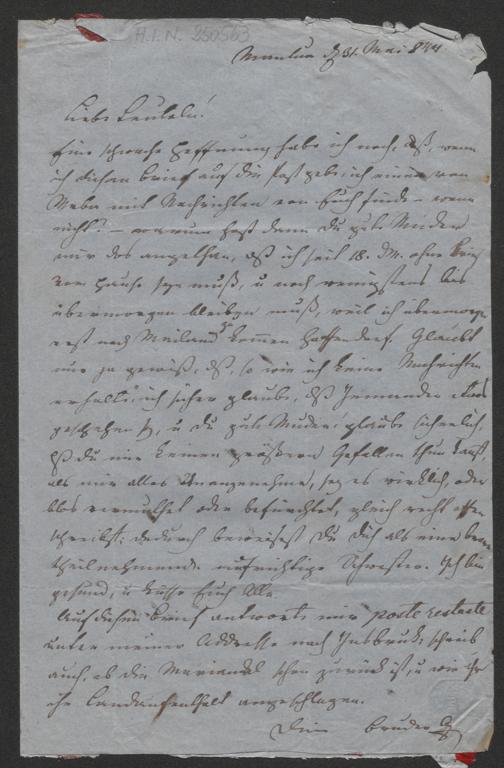 H.I.N. 250563
Mantua d 31. Mai 844
Liebe Leuteln!
Eine schwache Hoffnung habe ich noch, dß, wenn
ich diesen Brief auf die Post gebe, ich einen von
Weba mit Nachrichten von Euch finde – wenn
nicht? – warum hast denn du gute Muder
mir das angethan, dß ich seit 18. dM. ohne Brief
von Hause seyn muß, u noch wenigstens bis
übermorgen bleiben muß, weil ich übermorgen
erst nach Mailand zu kommen hoffen darf. Glaubt
mir ja gewiß, dß, so wie ich keine Nachrichten
erhalte, ich sicher glaube, dß Jemanden etwas
geschehen ist, u du gute Muder! glaube sicherlich,
dß du mir keinen größern Gefallen thun kannst,
als mir alles Unangenehme, sey es wirklich, oder
blos vermuthet oder befürchtet, gleich recht offen
schreibst; dadurch beweisest Du Dich als eine
theilnehmende aufrichtige Schwester. Ich bin
gesund, u küsse Euch Alle.
Auf diesen Brief antworte mir poste restante
unter meiner Addresse nach Insbruk, schreib
auch, ob die Mariandl schon zurück ist, u wie Ihr
der Landaufenthalt angeschlagen.
Dein Bruder